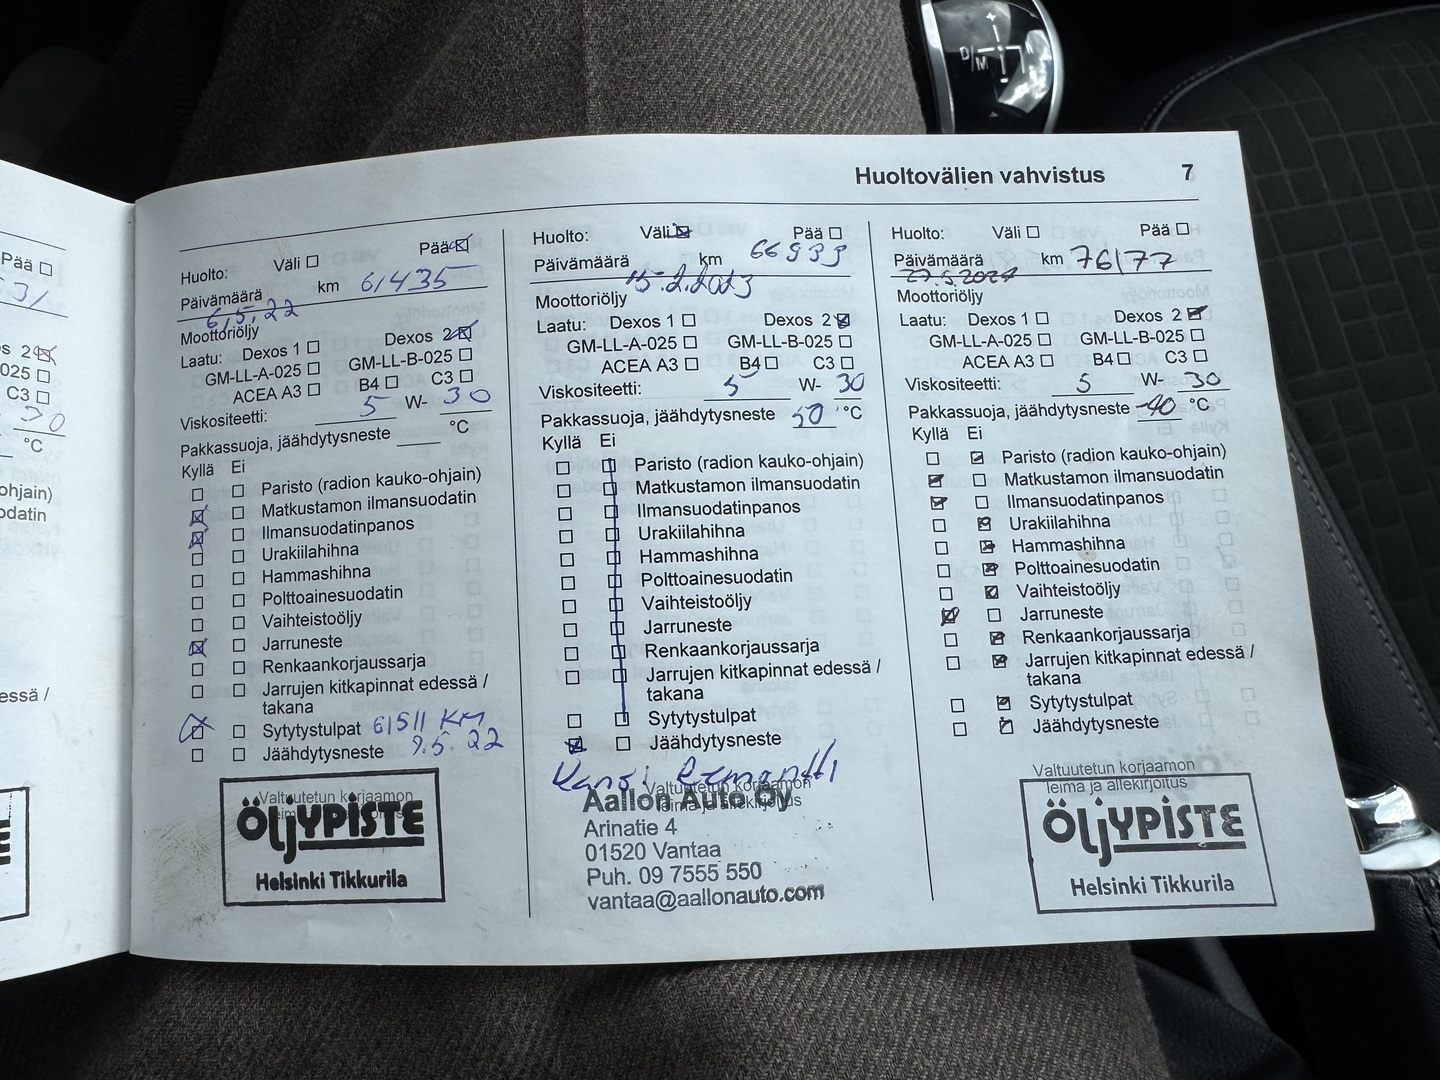 Huoltovälien vahvistus 7
Pää
s 2
025
C3
30
°C
ohjain)
odatin
essä /
Huolto: Väli Pää
Päivämäärä km 61435
6,5,22
Moottoriöljy
Laatu: Dexos 1 Dexos 2
GM-LL-A-025 GM-LL-B-025
ACEA A3 B4 C3
Viskositeetti: 5 W- 30
Pakkassuoja, jäähdytysneste °C
Kyllä Ei
Paristo (radion kauko-ohjain)
Matkustamon ilmansuodatin
Ilmansuodatinpanos
Urakiilahihna
Hammashihna
Polttoainesuodatin
Vaihteistoöljy
Jarruneste
Renkaankorjaussarja
Jarrujen kitkapinnat edessä /
takana
Sytytystulpat 61511 KM
Jäähdytysneste 9.5.22
Valtuutetun korjaamon
ÖljYPiSTE
Helsinki Tikkurila
Huolto: Väli Pää
Päivämäärä km 66933
15.2.2023
Moottoriöljy
Laatu: Dexos 1 Dexos 2
GM-LL-A-025 GM-LL-B-025
ACEA A3 B4 C3
Viskositeetti: 5 W- 30
Pakkassuoja, jäähdytysneste 50 °C
Kyllä Ei
Paristo (radion kauko-ohjain)
Matkustamon ilmansuodatin
Ilmansuodatinpanos
Urakiilahihna
Hammashihna
Polttoainesuodatin
Vaihteistoöljy
Jarruneste
Renkaankorjaussarja
Jarrujen kitkapinnat edessä /
takana
Sytytystulpat
Jäähdytysneste
Kansi Remontti
Valtuutetun korjaamon
leima ja allekirjoitus
Aallon Auto Oy
Arinatie 4
01520 Vantaa
Puh. 09 7555 550
vantaa@aallonauto.com
Huolto: Väli Pää
Päivämäärä km 76177
27.5.2024
Moottoriöljy
Laatu: Dexos 1 Dexos 2
GM-LL-A-025 GM-LL-B-025
ACEA A3 B4 C3
Viskositeetti: 5 W- 30
Pakkassuoja, jäähdytysneste -40 °C
Kyllä Ei
Paristo (radion kauko-ohjain)
Matkustamon ilmansuodatin
Ilmansuodatinpanos
Urakiilahihna
Hammashihna
Polttoainesuodatin
Vaihteistoöljy
Jarruneste
Renkaankorjaussarja
Jarrujen kitkapinnat edessä /
takana
Sytytystulpat
Jäähdytysneste
Valtuutetun korjaamon
leima ja allekirjoitus
ÖljYPiSTE
Helsinki Tikkurila
D/M